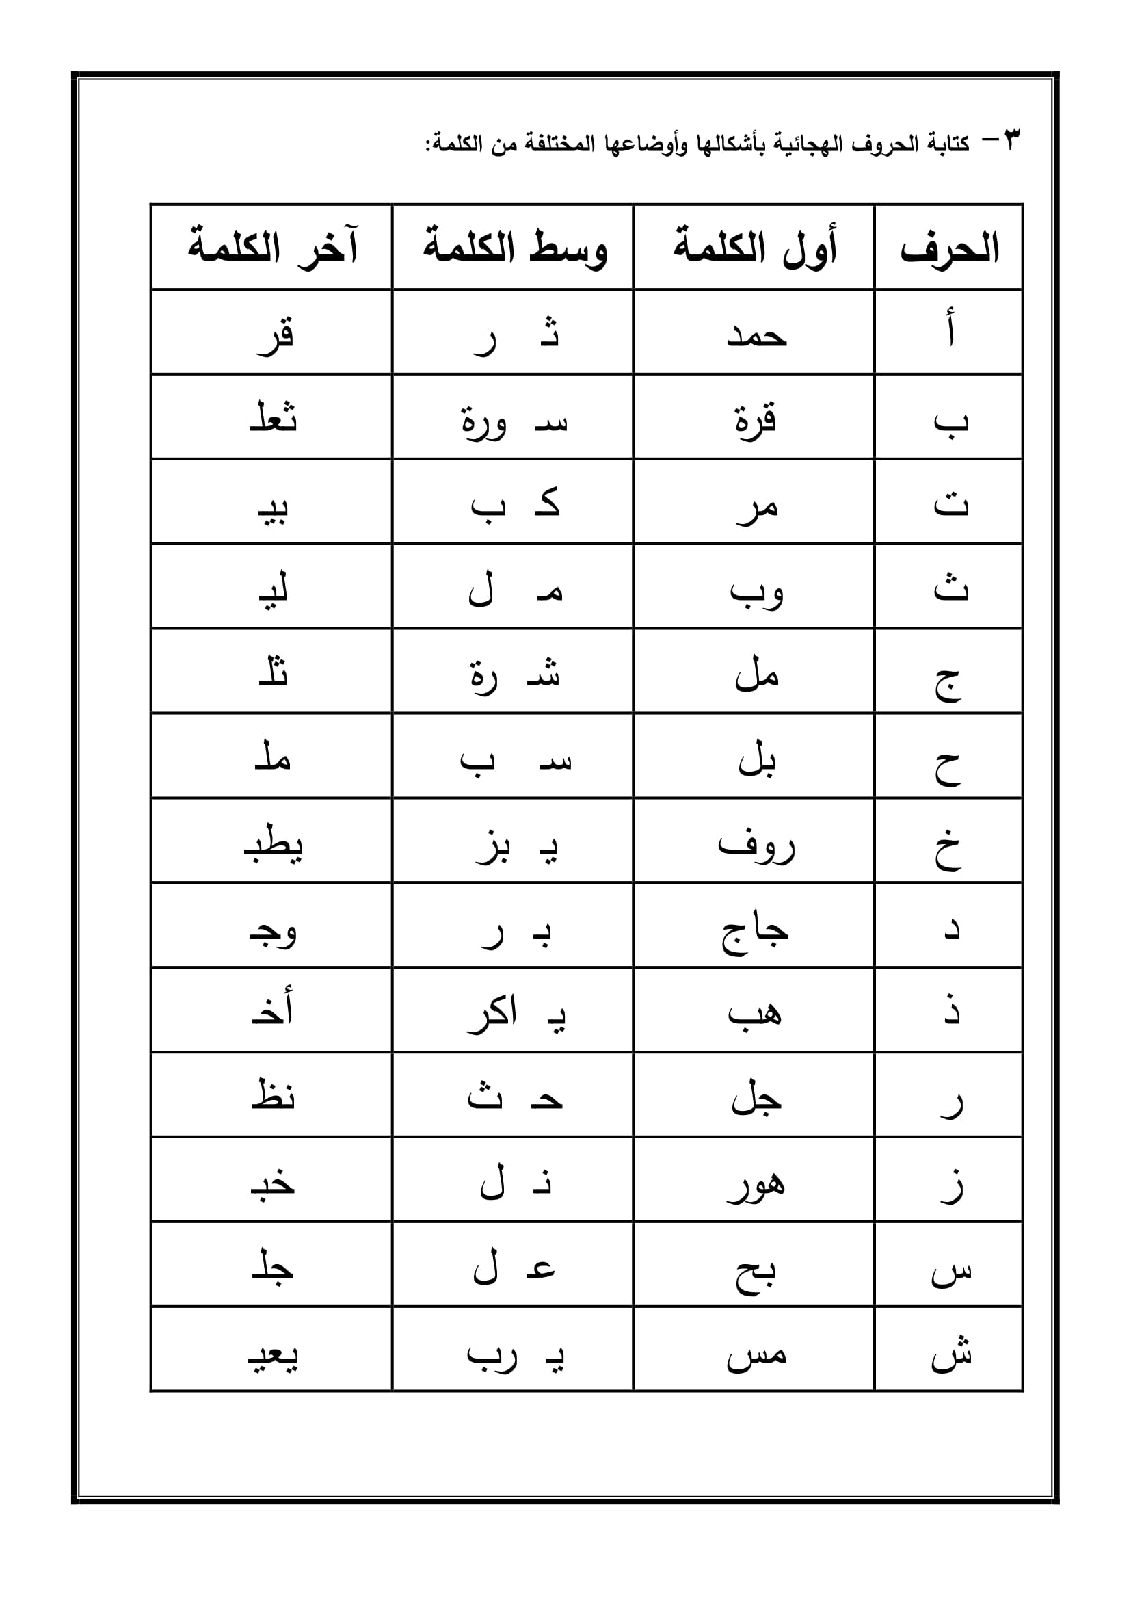 ٣ - كتابة الحروف الهجائية بأشكالها وأوضاعها المختلفة من الكلمة:
الحرف أول الكلمة وسط الكلمة آخر الكلمة
أ حمد ثـ ر قر
ب قرة سـ ورة ثعلـ
ت مر كـ ب بيـ
ث وب مـ ل ليـ
ج مل شـ رة ثلـ
ح بل سـ ب ملـ
خ روف يـ بز يطبـ
د جاج بـ ر وجـ
ذ هب يـ اكر أخـ
ر جل حـ ث نظـ
ز هور نـ ل خبـ
س بح عـ ل جلـ
ش مس يـ رب يعيـ